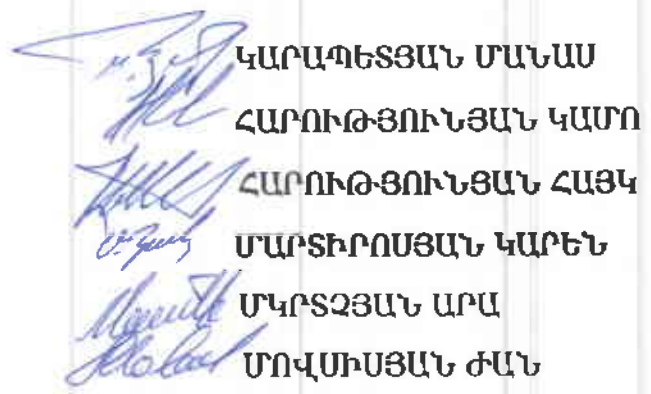 ԿԱՐԱՊԵՏՅԱՆ ՄԱՆԱՍ
ՀԱՐՈՒԹՅՈՒՆՅԱՆ ԿԱՄՈ
ՀԱՐՈՒԹՅՈՒՆՅԱՆ ՀԱՅԿ
ՄԱՐՏԻՐՈՍՅԱՆ ԿԱՐԵՆ
ՄԿՐՏՉՅԱՆ ԱՐԱ
ՄՈՎՍԻՍՅԱՆ ԺԱՆ